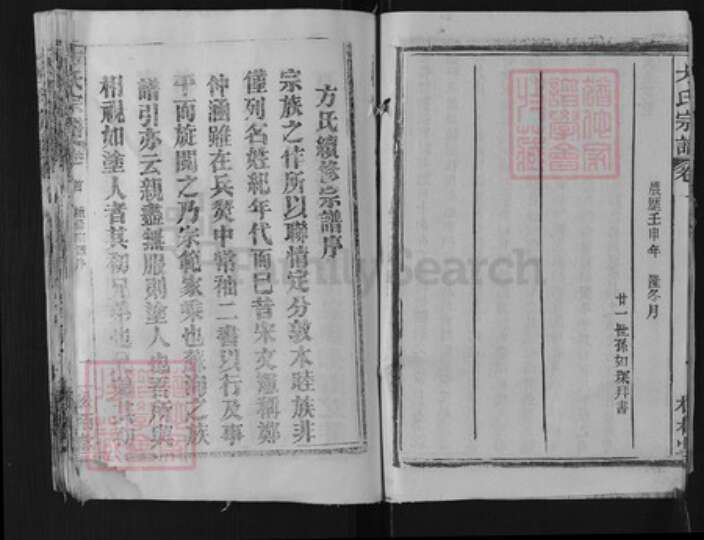 氏宗譜 卷
農歷壬申年 隆冬月
廿一世孫如琛拜書
方氏續修宗譜序
宗族之作所以聯情定分敦本睦族非
僅列名姓紀年代而已昔宋文憲稱鄭
仲涵雖在兵燹中常袖二書以行及事
平而旋閱之乃宗範家乘也蘇洵之族
譜引亦云親盡無服則塗人也吾所與
相視如塗人者其初兄弟也兄弟其初
氏宗譜
FamilySearch